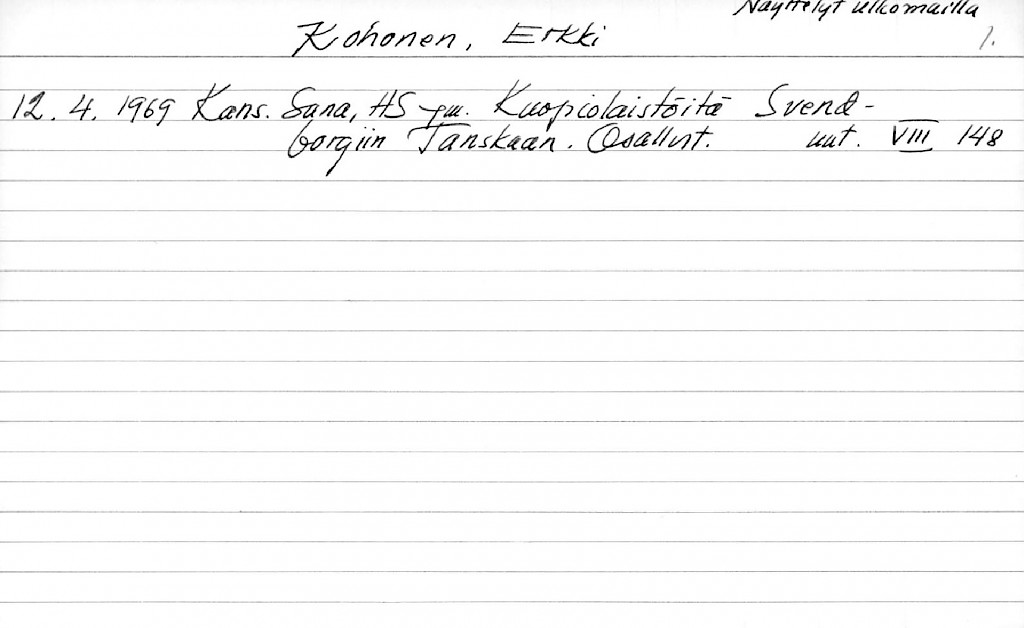 Näyttelyt ulkomailla
Kohonen, Erkki
1.
12. 4. 1969 Kans. Sana, HS ym. Kuopiolaistöitä Svend-
borgiin Tanskaan. Osallist. uut. VIII 148